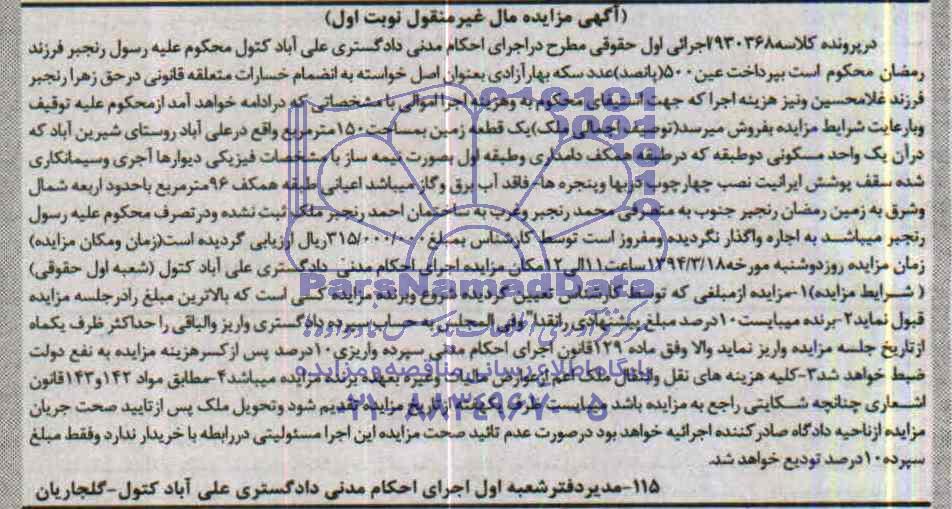 (آگهی مزایده مال غیرمنقول نوبت اول)
درپرونده کلاسه۷۹۳۰۳۶۸اجرائی اول حقوقی مطرح دراجرای احکام مدنی دادگستری علی آباد کتول محکوم علیه رسول رنجبر فرزند
رمضان محکوم است بپرداخت عین۵۰۰(پانصد)عدد سکه بهارآزادی بعنوان اصل خواسته به انضمام خسارات متعلقه قانونی درحق زهرا رنجبر
فرزند غلامحسین ونیز هزینه اجرا که جهت استیفای محکوم به وهزینه اجرا اموالی با مشخصاتی که درادامه خواهد آمد ازمحکوم علیه توقیف
وبارعایت شرایط مزایده بفروش میرسد(توصیف اجمالی ملک)یک قطعه زمین بمساحت۱۵۰مترمربع واقع درعلی آباد روستای شیرین آباد که
درآن یک واحد مسکونی دوطبقه که درطبقه همکف دامداری وطبقه اول بصورت نیمه ساز با مشخصات فیزیکی دیوارها آجری وسیمانکاری
شده سقف پوشش ایرانیت نصب چهارچوب دربها وپنجره ها-فاقد آب برق وگاز میباشد اعیانی طبقه همکف ۹۶مترمربع باحدود اربعه شمال
وشرق به زمین رمضان رنجبر جنوب به متصرفی محمد رنجبر وغرب به ساختمان احمد رنجبر ملک ثبت نشده ودرتصرف محکوم علیه رسول
رنجبر میباشد به اجاره واگذار نگردیده ومفروز است توسط کارشناس بمبلغ۳۱۵/۰۰۰/۰۰۰ریال ارزیابی گردیده است(زمان ومکان مزایده)
زمان مزایده روزدوشنبه مورخه۱۳۹۴/۳/۱۸ساعت۱۱الی۱۲مکان مزایده اجرای احکام مدنی دادگستری علی آباد کتول (شعبه اول حقوقی)
(شرایط مزایده)۱-مزایده ازمبلغی که توسط کارشناس تعیین گردیده شروع وبرنده مزایده کسی است که بالاترین مبلغ رادرجلسه مزایده
قبول نماید۲-برنده میبایست۱۰درصد مبلغ پیشنهادی رانقدا" وفی المجلس به حساب سپرده دادگستری واریز والباقی را حداکثر ظرف یکماه
ازتاریخ جلسه مزایده واریز نماید والا وفق ماده ۱۲۹قانون اجرای احکام مدنی سپرده واریزی۱۰درصد پس ازکسرهزینه مزایده به نفع دولت
ضبط خواهد شد۳-کلیه هزینه های نقل وانتقال ملک اعم ازعوارض مالیات وغیره بعهده برنده مزایده میباشد۴-مطابق مواد ۱۴۲و۱۴۳قانون
اشعاری چنانچه شکایتی راجع به مزایده باشد میبایست ظرف یکهفته ازتاریخ مزایده تقدیم شود وتحویل ملک پس ازتایید صحت جریان
مزایده ازناحیه دادگاه صادرکننده اجرائیه خواهد بود درصورت عدم تائید صحت مزایده این اجرا مسئولیتی دررابطه با خریدار ندارد وفقط مبلغ
سپرده۱۰درصد تودیع خواهد شد.
۱۱۵-مدیردفترشعبه اول اجرای احکام مدنی دادگستری علی آباد کتول-گلجاریان
ParsNamadData
پایگاه اطلاع رسانی مناقصه و مزایده
۰۲۱-۸۸۳۴۹۶۷۰-۵